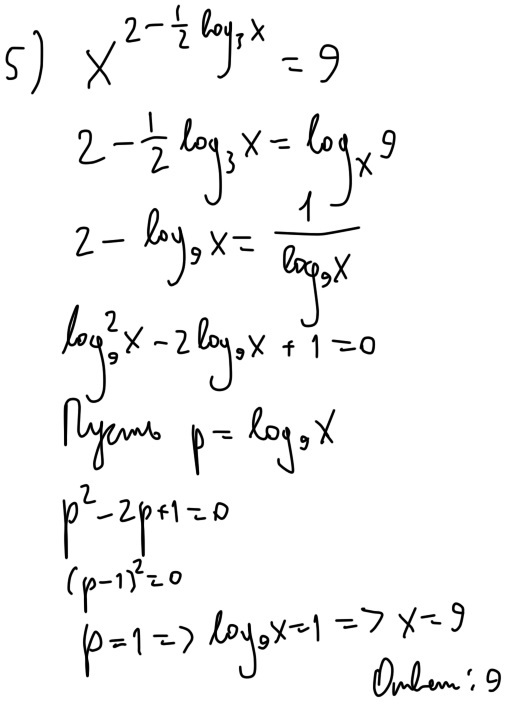 5) x^{2-\frac{1}{2}log_3 x} = 9
2-\frac{1}{2}log_3 x = log_x 9
2-log_9 x = \frac{1}{log_9 x}
log_9^2 x - 2log_9 x + 1 = 0
Пусть p = log_9 x
p^2 - 2p + 1 = 0
(p-1)^2 = 0
p = 1 => log_9 x = 1 => x = 9
Ответ: 9